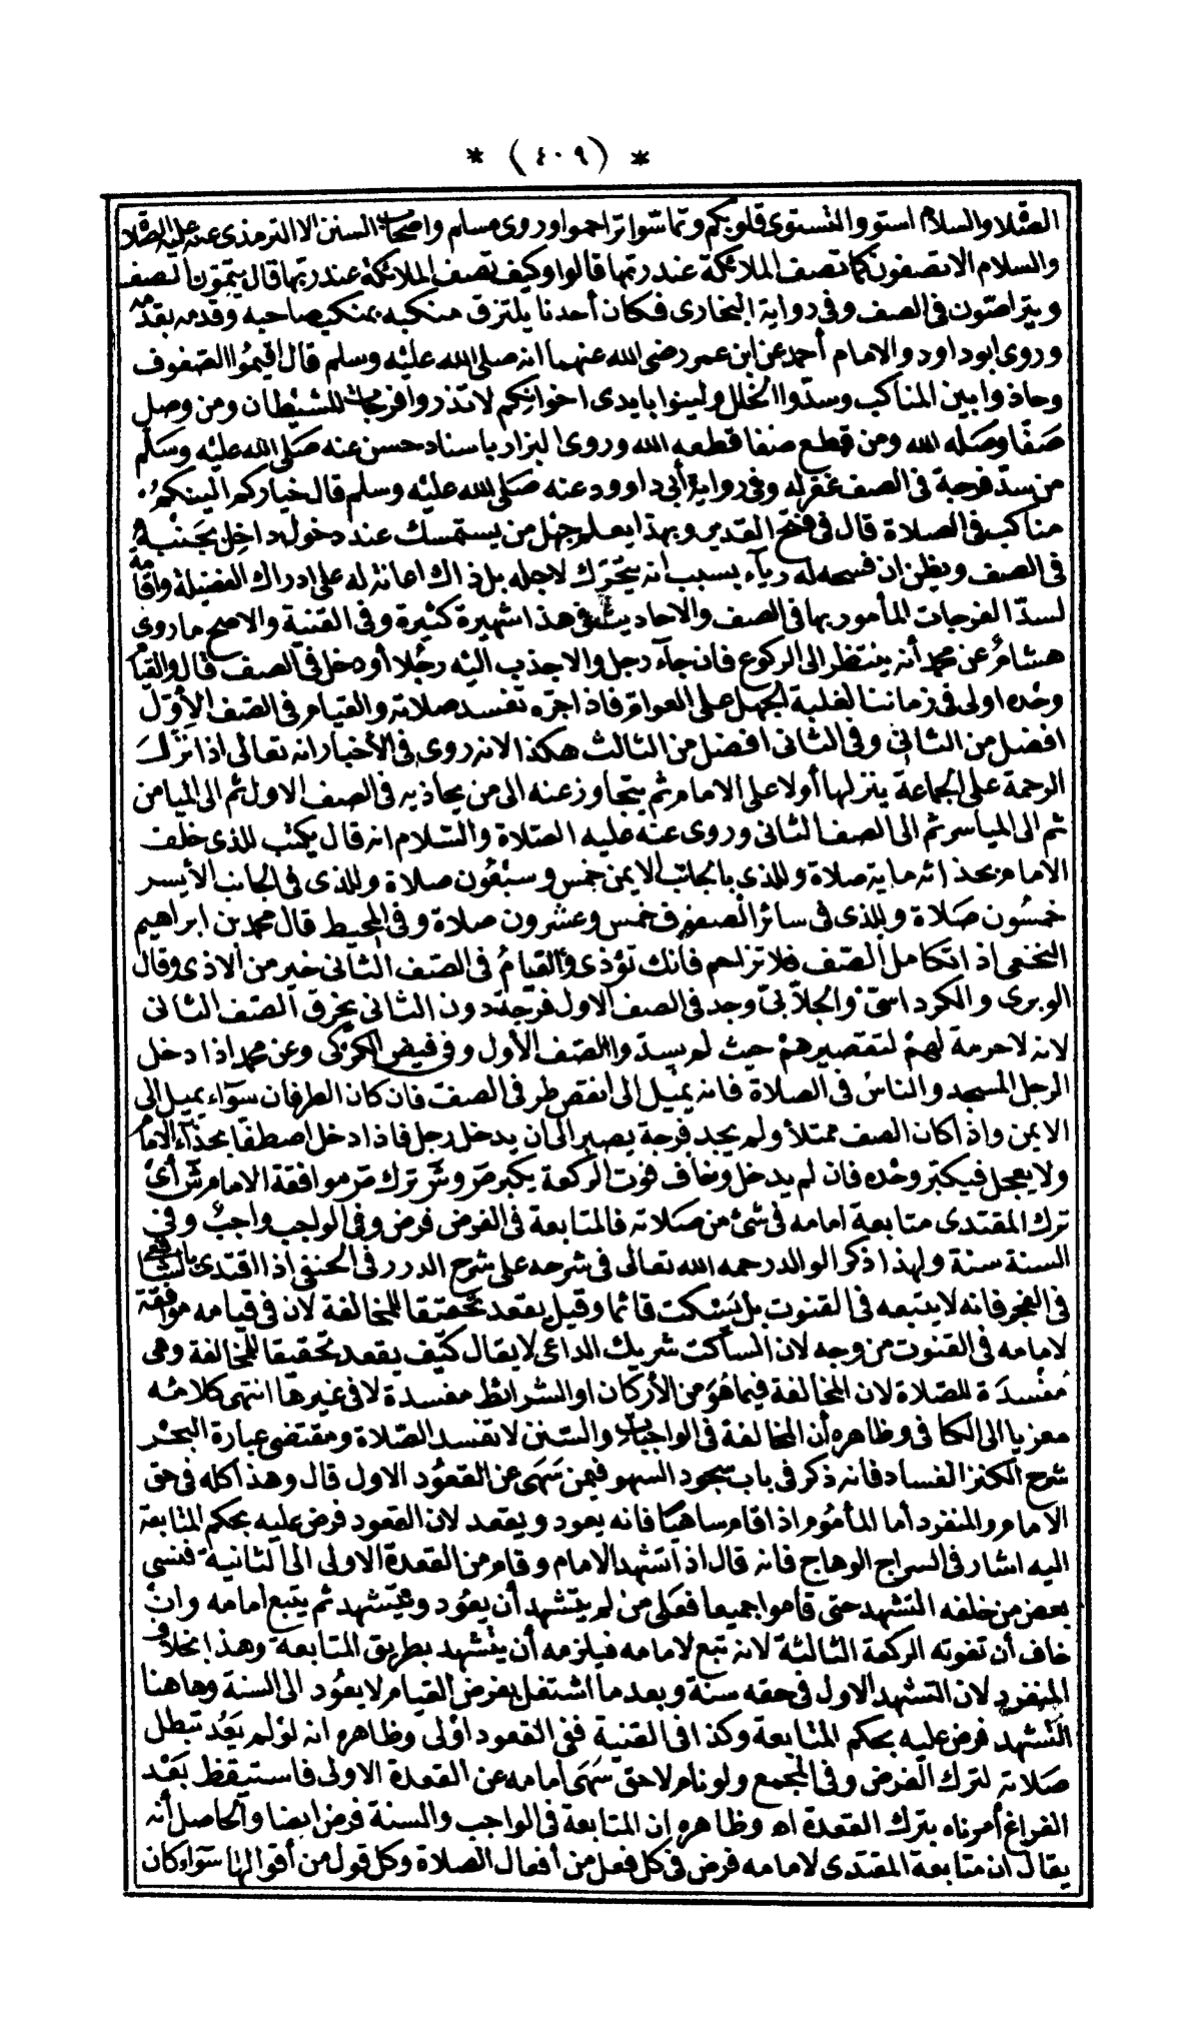 * (٤٠٩) *
الصلاة والسلام استووا تستوى قلوبكم وتماسوا تراحموا وروى مسلم واصحاب السنن الا الترمذى عنه عليه الصلاة
والسلام الا تصفون كما تصف الملائكة عند ربها قالوا وكيف تصف الملائكة عند ربها قال يتمون الصف
ويتراصّون فى الصف وفى رواية البخارى فكان أحدنا يلتزق منكبه بمنكب صاحبه وقدمه بقدمه
وروى ابو داود والامام أحمد عن ابن عمر رضى الله عنهما انه صلى الله عليه وسلم قال اقيموا الصفوف
وحاذوا بين المناكب وسدّوا الخلل ولينوا بايدى اخوانكم لا تذروا فرجات للشيطان ومن وصل
صفّا وصله الله ومن قطع صفا قطعه الله وروى البزار باسناد حسن عنه صلى الله عليه وسلم
من سدّ فرجة فى الصف غفر له وفى رواية أبى داوود عنه صلى الله عليه وسلم قال خياركم الينكم
مناكب فى الصلاة قال فى فتح القدير وبهذا يعلم جهل من يستمسك عند دخول داخل بجنبه
فى الصف ويظن ان فسحه له رياء بسبب انه يتحرّك لاجله بل ذاك اعانة له على ادراك الفضيلة واقامة
لسدّ الفرجات المأمور بها فى الصف والاحاديث فى هذا شهيرة كثيرة وفى القنية والاصح ما روى
هشام عن محمد أنه ينتظر الى الركوع فان جاء رجل والا جذب اليه رجلا أو دخل فى الصف قال والقيام
وحده اولى فى زماننا لغلبة الجهل على العوام فاذا جرّه تفسد صلاته والقيام فى الصف الأوّل
افضل من الثانى وفى الثانى افضل من الثالث هكذا لانه روى فى الأخبار انه تعالى اذا نزّل
الرحمة على الجماعة ينزلها أولا على الامام ثم يتجاوز عنه الى من يحاذيه فى الصف الاول ثم الى الميامن
ثم الى المياسر ثم الى الصف الثانى وروى عنه عليه الصلاة والسلام انه قال يكتب للذى خلف
الامام بحذائه ماية صلاة وللذى بالجانب الايمن خمس وسبعون صلاة وللذى فى الجانب الأيسر
خمسون صلاة وللذى فى سائر الصفوف خمس وعشرون صلاة وفى المحيط قال محمد بن ابراهيم
النخعى اذا تكامل الصف فلا تزاحم فانك تؤذى والقيام فى الصف الثانى خير من الاذى وقال
الوبرى والكرد اسىّ والجلاّبى وجد فى الصف الاول فرجة دون الثانى يخرق الصف الثانى
لانه لا حرمة لهم لتقصيرهم حيث لم يسدوا الصف الأول وفى فيض الكركى وعن محمد اذا دخل
الرجل المسجد والناس فى الصلاة فانه يميل الى انقص طرفى الصف فان كان الطرفان سواء يميل الى
الايمن واذا كان الصف ممتلأ ولم يجد فرجة يصبر الى ان يدخل رجل فاذا دخل اصطفا بحذاء الامام
ولا يعجل فيكبر وحده فان لم يدخل وخاف فوت الركعة يكبر ص وش ترك ص موافقة الامام ش أى
ترك المقتدى متابعة امامه فى شئ من صلاته فالمتابعة فى الفرض فرض وفى الواجب واجب وفى
السنة سنة ولهذا ذكر الوالد رحمه الله تعالى فى شرحه على شرح الدرر فى الحنفى اذا اقتدى بالشافعى
فى الفجر فانه لا يتبعه فى القنوت بل يسكت قائما وقيل يقعد تحقيقا للمخالفة لان فى قيامه موافقة
لامامه فى القنوت من وجه لان الساكت شريك الداعى لا يقال كيف يقعد تحقيقا للمخالفة وهى
مفسدة للصلاة لان المخالفة فيما هو من الأركان او الشرائط مفسدة لا فى غيرها انتهى كلامه
معزيا الى الكافى وظاهره أن المخالفة فى الواجبات والسنن لا تفسد الصلاة ومقتضى عبارة البحر
شرح الكنز الفساد فانه ذكر فى باب سجود السهو فيمن سهى عن القعود الاول قال وهذا كله فى حق
الامام والمنفرد أما المأموم اذا قام ساهيا فانه يعود ويقعد لان القعود فرض عليه بحكم المتابعة
اليه اشار فى السراج الوهاج فانه قال اذا تشهد الامام وقام من القعدة الاولى الى الثانية فنسى
بعض من خلفه التشهد حتى قاموا جميعا فعلى من لم يتشهد أن يعود ويتشهد ثم يتبع امامه وان
خاف أن تفوته الركعة الثالثة لانه تبع لامامه فيلزمه أن يتشهد بطريق المتابعة وهذا بخلاف
المنفرد لان التشهد الاول فى حقه سنة وبعدما اشتغل بفرض القيام لا يعود الى السنة وهاهنا
التشهد فرض عليه بحكم المتابعة وكذا فى القنية ففى القعود اولى وظاهره انه لو لم يعد تبطل
صلاته لترك الفرض وفى المجمع ولو نام لاحق سهى امامه عن القعدة الاولى فاستيقظ بعد
الفراغ أمرناه بترك القعدة اه وظاهره ان المتابعة فى الواجب والسنة فرض ايضا والحاصل أنه
يقال ان متابعة المقتدى لامامه فرض فى كل فعل من أفعال الصلاة وكل قول من أقوالها سواء كان